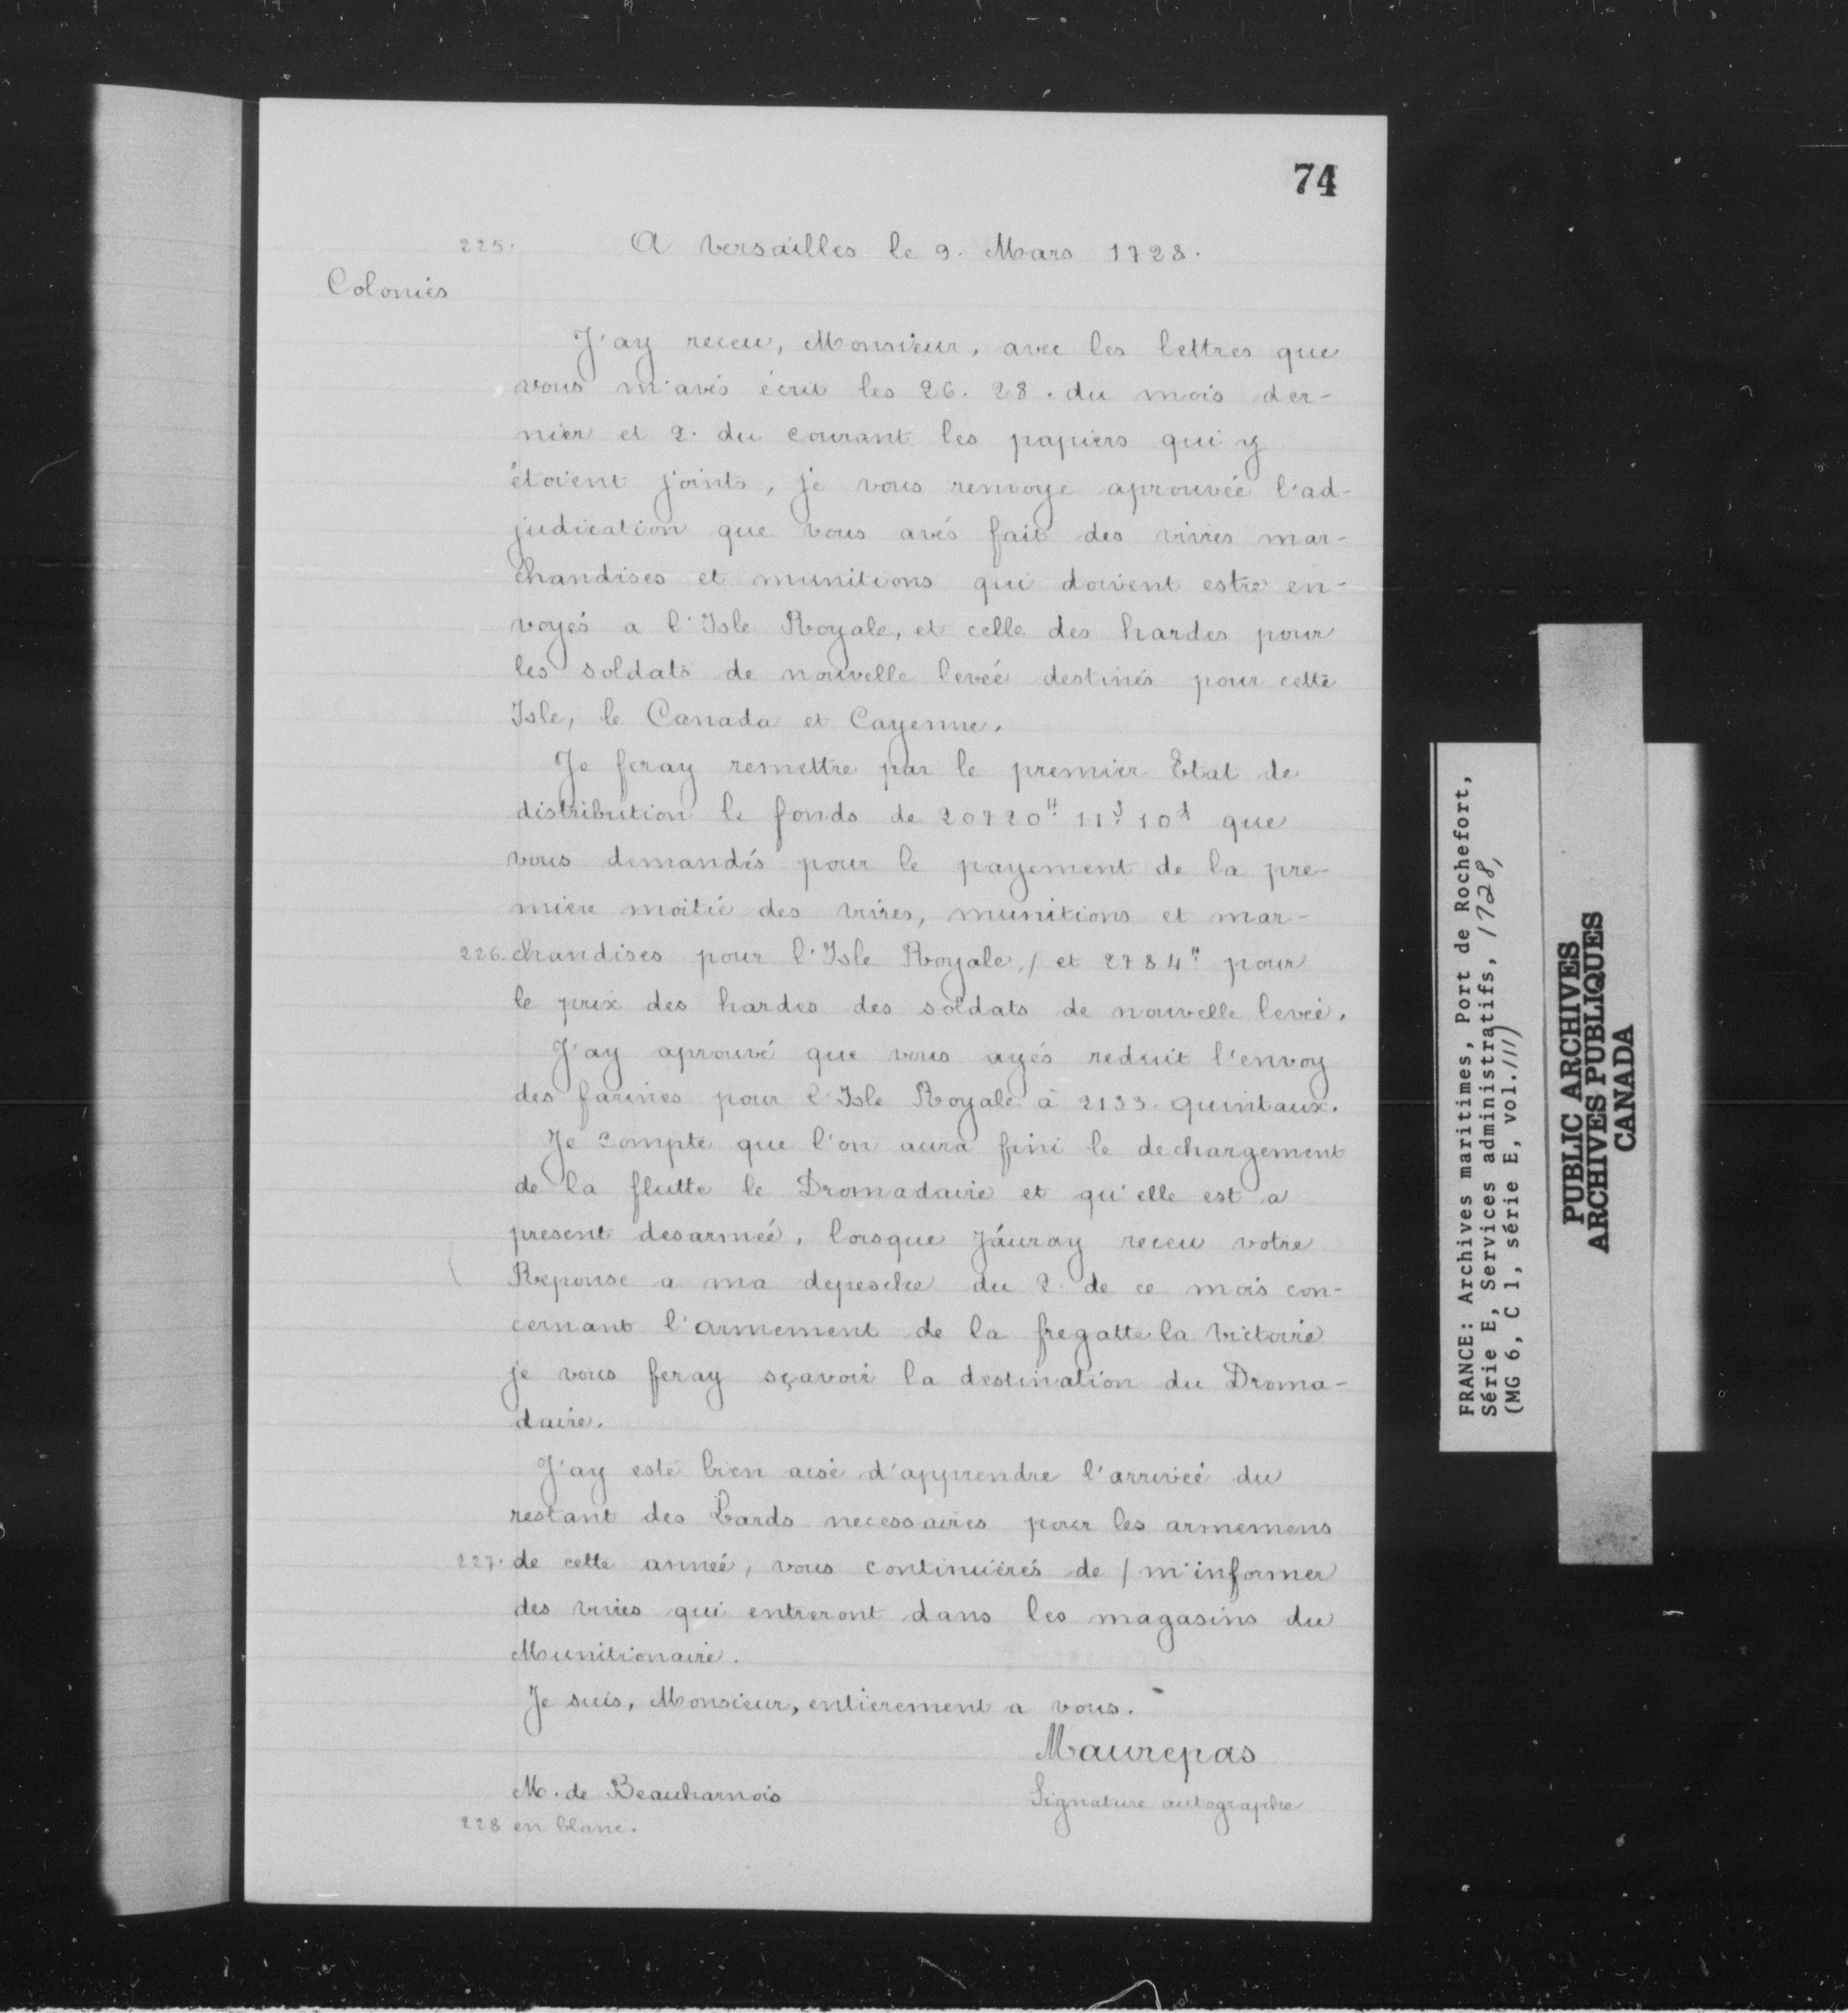 74
225. A Versailles le 9. Mars 1728.
Colonies
J'ay receu, Monsieur, avec les lettres que
vous m'avés écrit les 26. 28. du mois der-
nier et 2. du courant les papiers qui y
étoient joints, je vous renvoye aprouvée l'ad-
judication que vous avés fait des vivres mar-
chandises et munitions qui doivent estre en-
voyés a l'Isle Royale, et celle des hardes pour
les soldats de nouvelle levée destinés pour cette
Isle, le Canada et Cayenne.
Je feray remettre par le premier Etat de
distribution le fonds de 20720ᵗᵗ 11ˢ 10ᵈ que
vous demandés pour le payement de la pre-
miere moitié des vivres, munitions et mar-
226. chandises pour l'Isle Royale, / et 2784ᵗᵗ pour
le prix des hardes des soldats de nouvelle levée.
J'ay aprouvé que vous ayés reduit l'envoy
des farines pour l'Isle Royale à 2133. quintaux.
Je compte que l'on aura fini le dechargement
de la flutte le Dromadaire et qu'elle est a
present desarmée, lorsque J'auray receu votre
Reponse a ma depesche du 2. de ce mois con-
cernant l'armement de la fregatte la Victoire
je vous feray sçavoir la destination du Droma-
daire.
J'ay esté bien aisé d'apprendre l'arrivée du
restant des Lards necessaires pour les armemens
227. de cette année, vous continuérés de / m'informer
des vivres qui entreront dans les magasins du
Munitionaire.
Je suis, Monsieur, entierement a vous.
Maurepas
M. de Beauharnois Signature autographe
228 en blanc.
FRANCE: Archives maritimes, Port de Rochefort,
Série E, Services administratifs, 1728,
(MG 6, C 1, série E, vol. 111)
PUBLIC ARCHIVES
ARCHIVES PUBLIQUES
CANADA